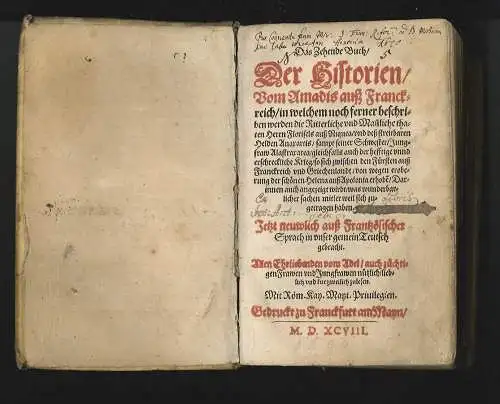 Das Zehende Buch/
Der Historien/
Vom Amadis auß Franck-
reich/ in welchem noch ferner beschri-
ben werden die Ritterliche vnd Mañliche tha-
ten Herrn Florisels auß Niquea/ vnd deß streitbaren
Helden Anaxartis/ sampt seiner Schwester/ Jung-
fraw Alastraxarea/ gleichfalls auch der hefftige vnnd
erschreckliche Krieg/ so sich zwischen den Fürsten auß
Franckreich vnd Griechenlandt/ von wegen erobe-
rung der schönen Helena auß Apolonia erhobt/ Dar-
innen auch angezeigt wirdt/ was wunderbar-
licher sachen mitler weil sich zu-
getragen haben
Jetzt neuwlich auß Frantzösischer
Sprach in vnser gemein Teutsch
gebracht.
Allen Ehrliebenden vom Adel/ auch züchti-
gen Frawen vnd Jungfrawen nützlich/ lieb-
lich vnd kurtzweilich zulesen.
Mit Röm. Kay. Mayt. Priuilegien.
Gedruckt zu Franckfurt am Mayn/
M. D. XCVIII.